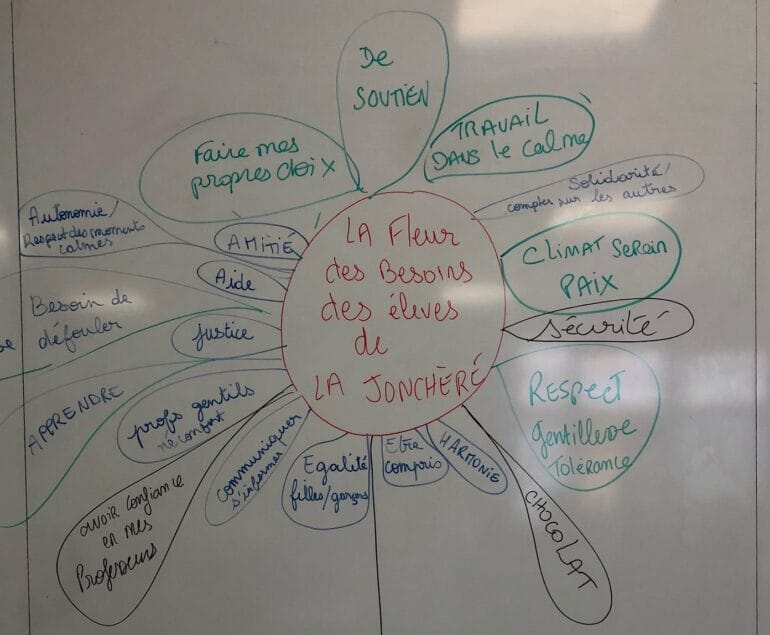 LA Fleur
des Besoins
des élèves
de
LA JONCHÈRÉ
De
SOUTIEN
TRAVAIL
DANS le calme
Solidarité/
compter sur les autres
CLIMAT Serein
PAIX
Sécurité
RESPECT
Gentillesse
Tolérance
CHOCOLAT
HARMONIE
Etre
compris
Egalité
filles/garçons
communiquer
s'informer
avoir confiance
en mes
Professeurs
profs gentils
réconfort
APPRENDRE
justice
Besoin de
défouler
Aide
AMITIÉ
Autonomie/
Respect des moments
calmes
Faire mes
propres choix